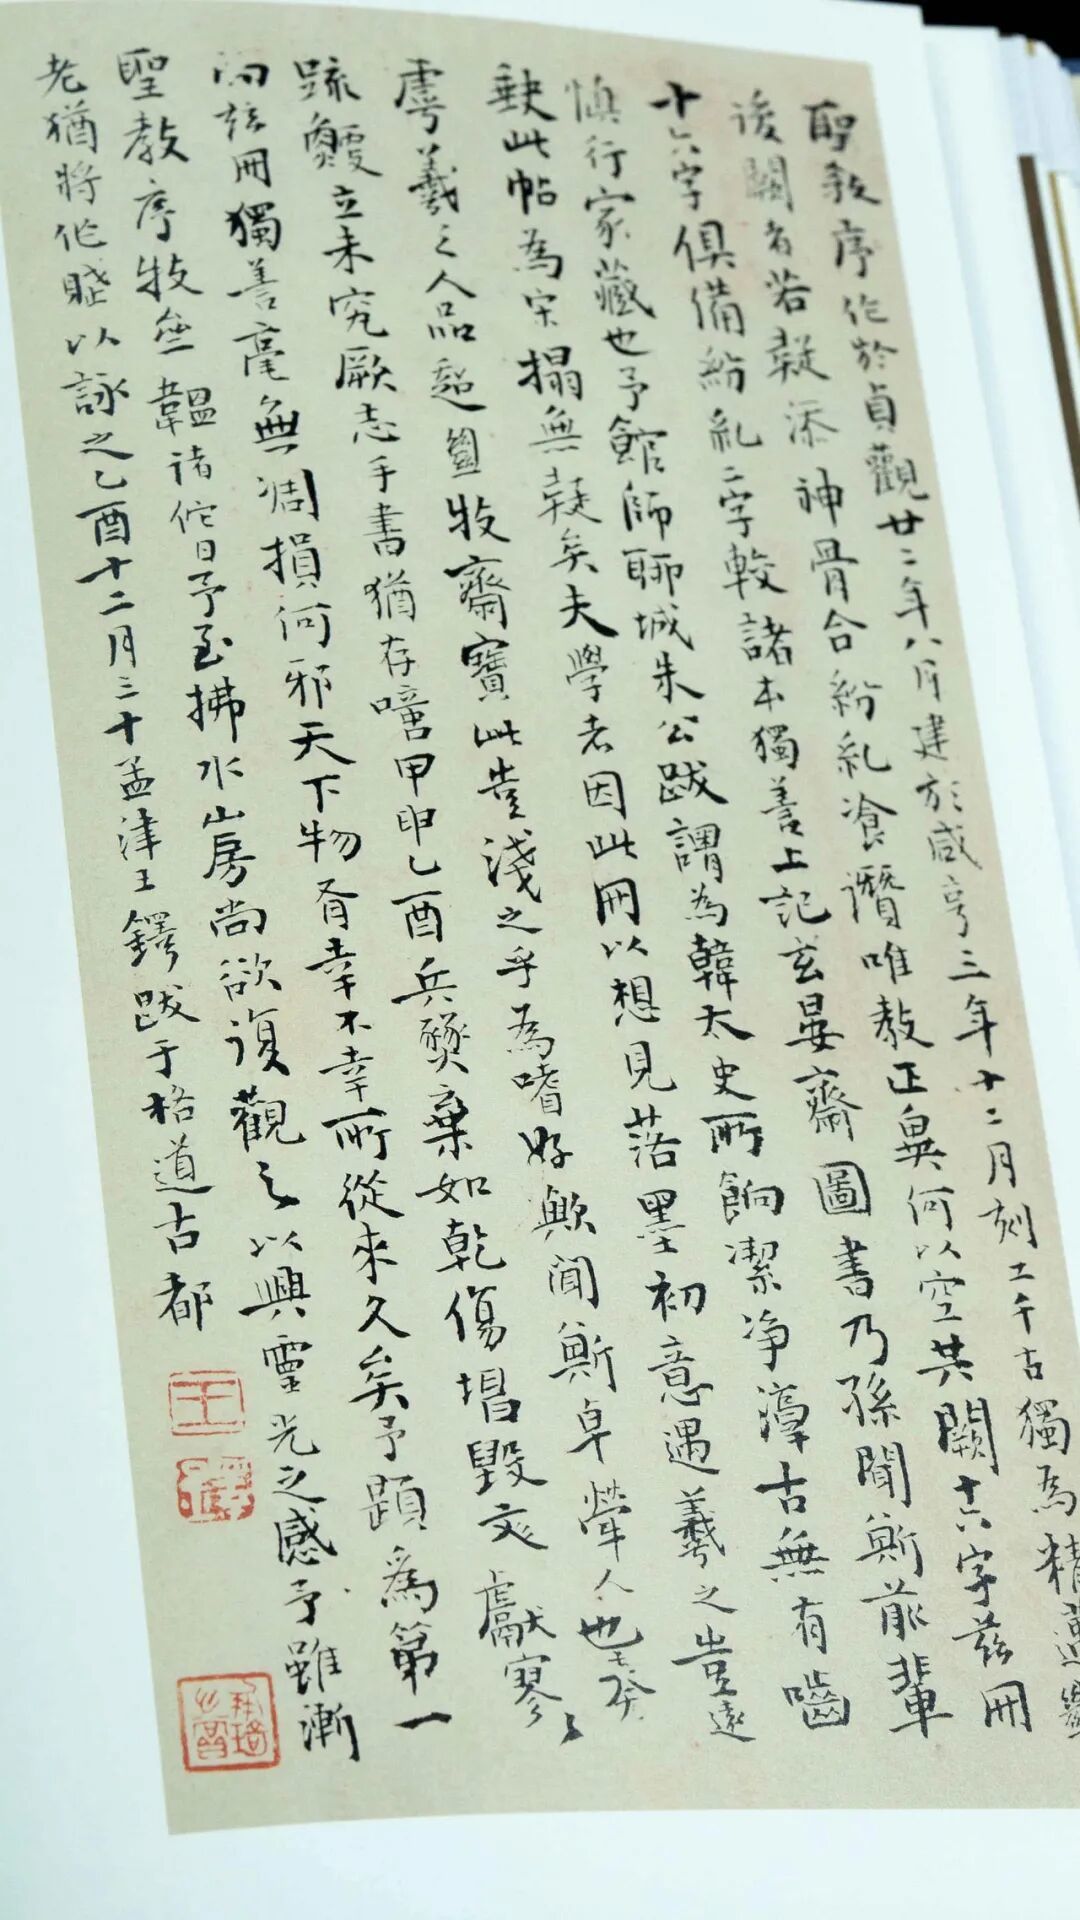 聖教序作於貞觀廿二年八月建於咸亨三年十二月刻工千古獨為精
後闕者若疑添神骨合紛糺飡潛唯教正與何以空其闕十六字茲冊
十六字俱備紛糺二字較諸本獨善上記玄晏齋圖書乃孫聞斯前輩
慎行家藏也予館師聊城朱公跋謂為韓太史所餉潔淨淳古無有嚙
缺此帖為宋搨無疑矣夫學者因此冊以想見落墨初意遇羲之豈遠
虖羲之人品超牧齋寶此豈淺之乎為嗜好歟聞斯卓犖人也
疏立未究厥志手書猶存噫甲申乙酉兵燹棄如乾傷塌毀文獻寥〻
而茲冊獨善毫無凋損何邪天下物有幸不幸所從來久矣予題為第一
聖教序牧齋韞諸佗日予至拂水山房尚欲復觀之以興靈光之感予雖漸
老猶將作賦以詠之乙酉十二月三十孟津王鐸跋于格道古都
王
鐸